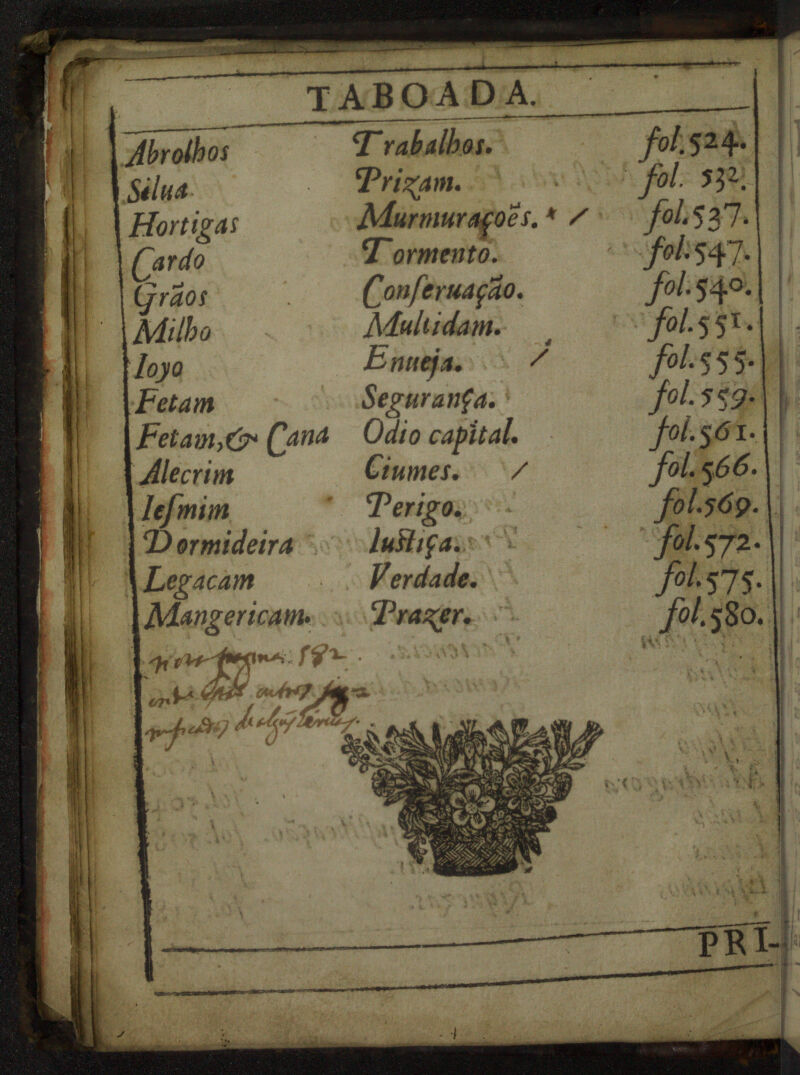 TABOADA.
Abrolhos Trabalhos. fol. 524.
Silua Prizam. fol. 532.
Hortigas Murmuraçoẽs. * / fol. 537.
Cardo Tormento. fol. 547.
Grãos Conſeruação. fol. 540.
Milho Multidam. fol. 551.
Ioyo Enueja. / fol. 555.
Fetam Segurança. fol. 559.
Fetam, & Cana Odio capital. fol. 561.
Alecrim Ciumes. / fol. 566.
Ieſmim Perigo. fol. 569.
Dormideira Iuſtiça. fol. 572.
Legacam Verdade. fol. 575.
Mangericam. Prazer. fol. 580.
582
PRI-